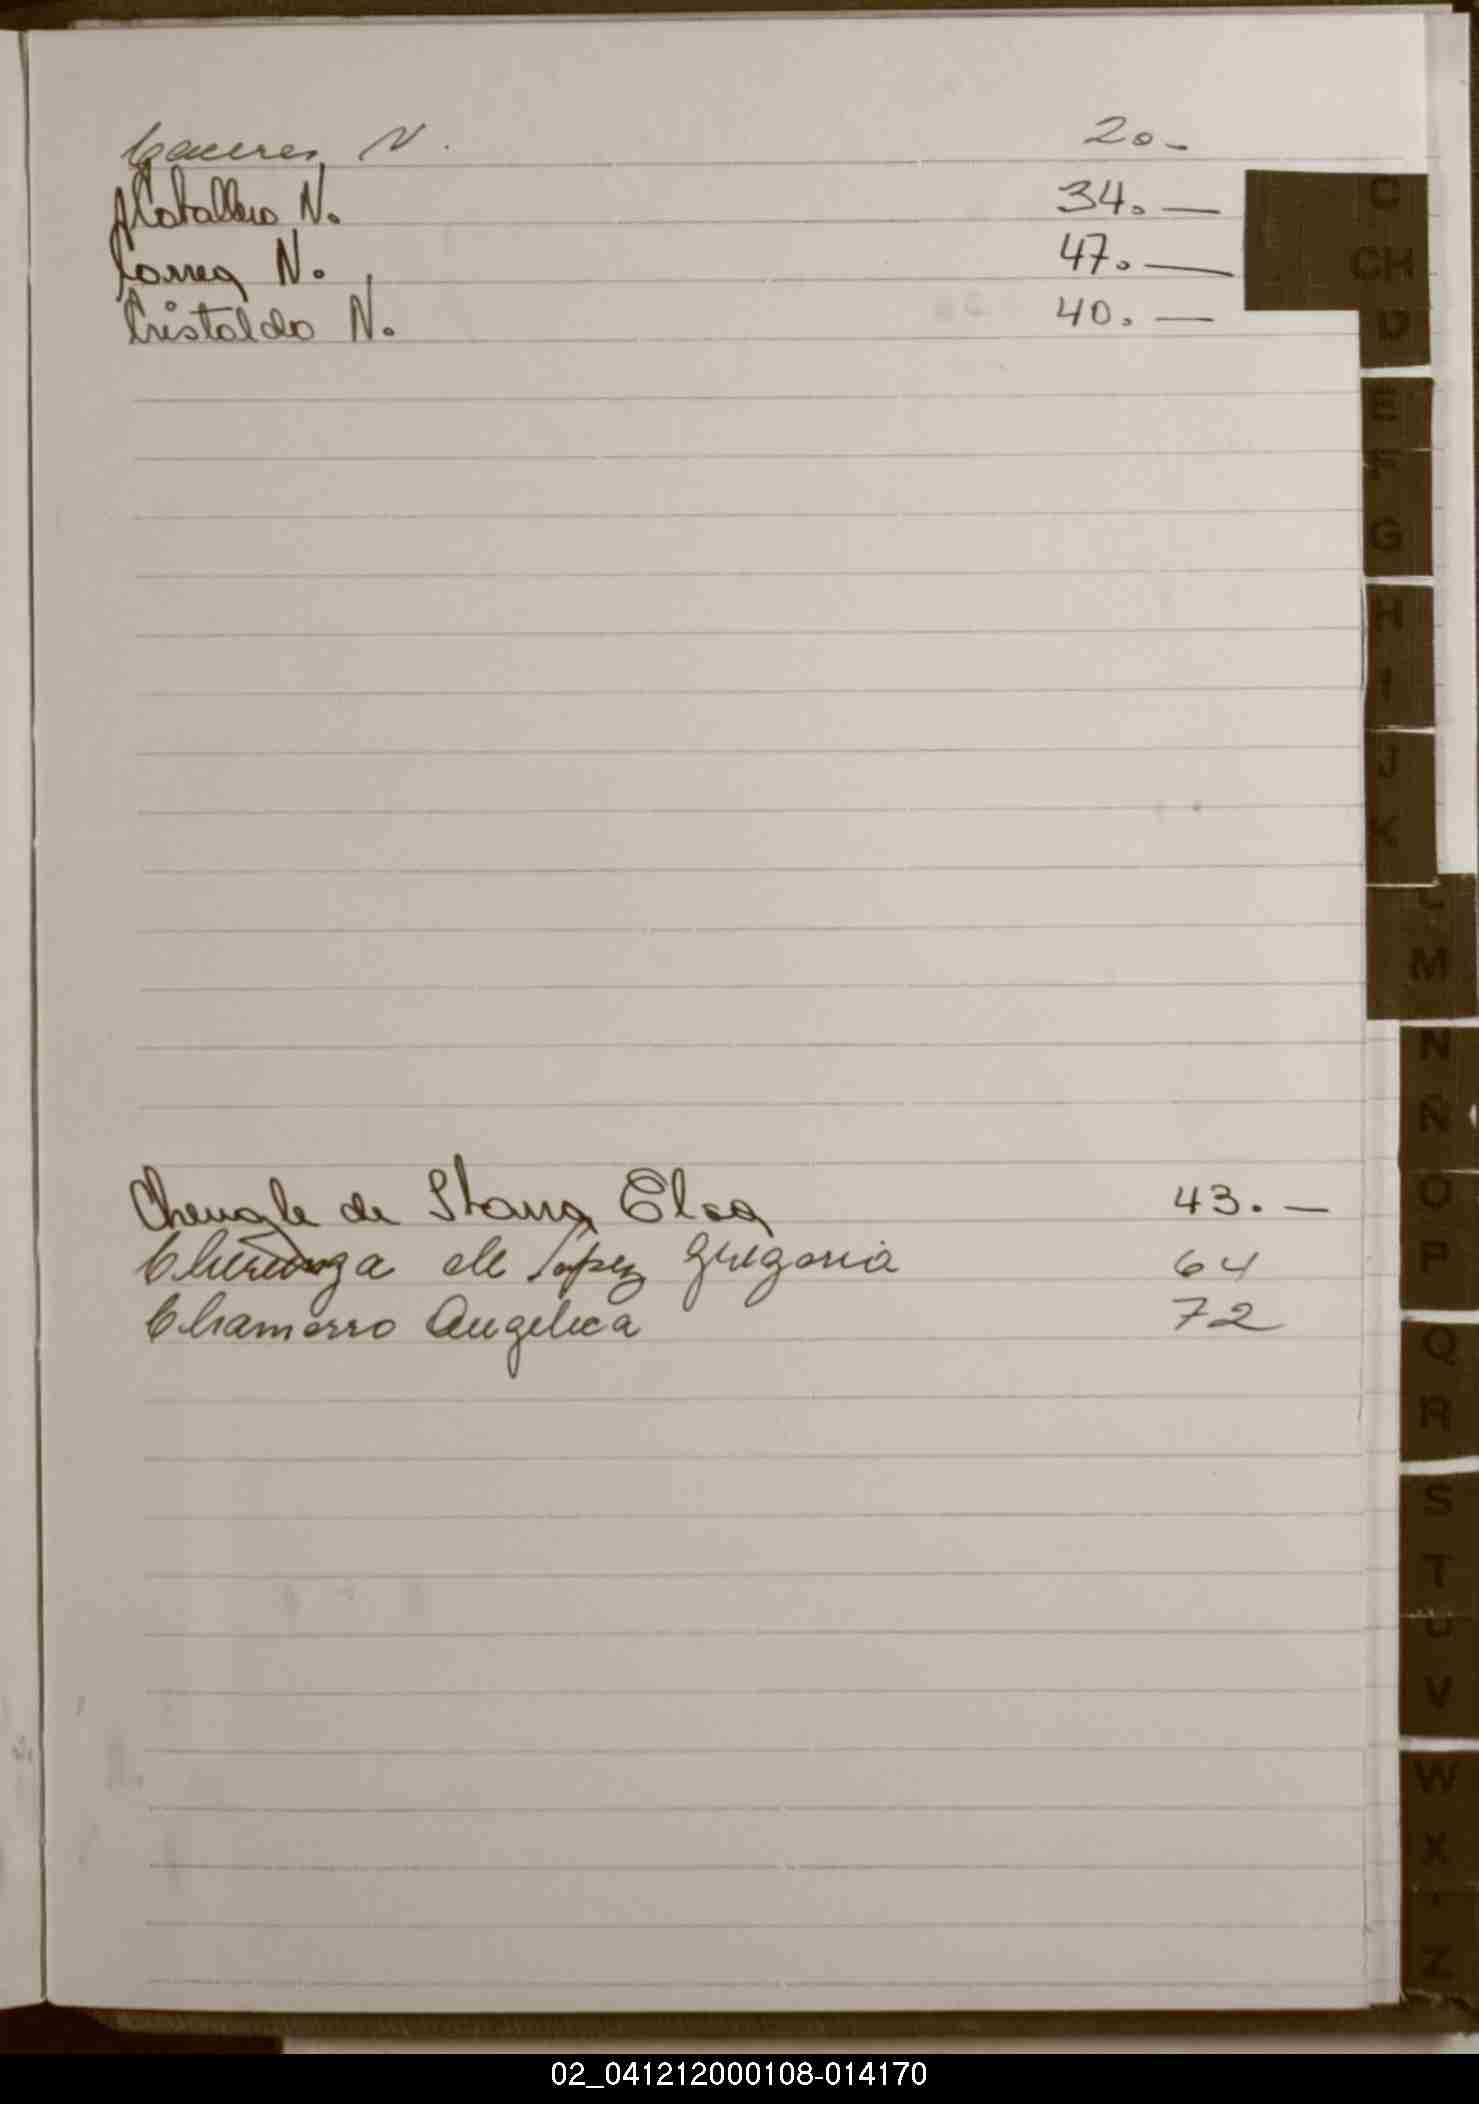 Caceres N. 20.-
Caballero N. 34.—
Correa N. 47.—
Cristaldo N. 40.—
C
CH
D
E
F
G
H
I
J
K
L
M
N
Ñ
O
P
Q
R
S
T
U
V
W
X
Z
de Elsa 43.—
de Lopez Gregoria 64
Chamorro Angelica 72
02_041212000108-014170